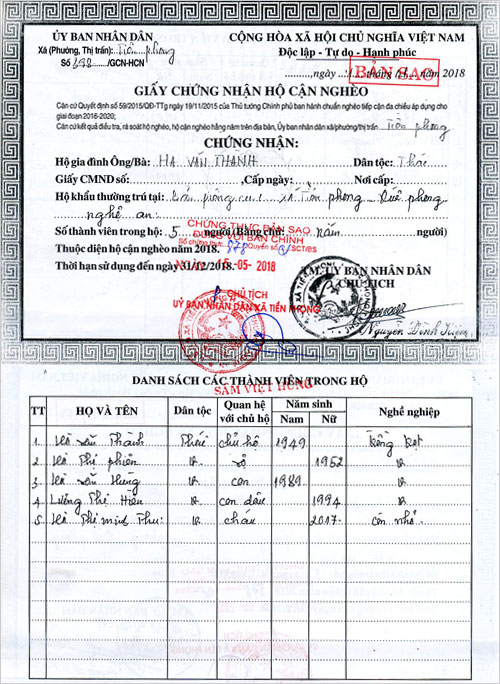 ỦY BAN NHÂN DÂN
Xã (Phường, Thị trấn): Tiền phong
Số 698 /GCN-HCN
CỘNG HÒA XÃ HỘI CHỦ NGHĨA VIỆT NAM
Độc lập - Tự do - Hạnh phúc
BẢN SAO
ngày tháng năm 2018
GIẤY CHỨNG NHẬN HỘ CẬN NGHÈO
Căn cứ Quyết định số 59/2015/QĐ-TTg ngày 19/11/2015 của Thủ tướng Chính phủ ban hành chuẩn nghèo tiếp cận đa chiều áp dụng cho
giai đoạn 2016-2020;
Căn cứ kết quả điều tra, rà soát hộ nghèo, hộ cận nghèo hằng năm trên địa bàn, Ủy ban nhân dân xã/phường/thị trấn Tiền phong
CHỨNG NHẬN:
Hộ gia đình Ông/Bà: HÀ VĂN THANH Dân tộc: Thái
Giấy CMND số: Cấp ngày: Nơi cấp:
Hộ khẩu thường trú tại: xã Tiền phong Quế phong
nghệ an
Số thành viên trong hộ: 5 người (Bằng chữ: năm người)
CHỨNG THỰC BẢN SAO
ĐÚNG VỚI BẢN CHÍNH
Số chứng thực 578 Quyển số SCT/BS
Thuộc diện hộ cận nghèo năm 2018.
Thời hạn sử dụng đến ngày 31/12/2018.
NGÀY 15-05-2018
TM. ỦY BAN NHÂN DÂN
CHỦ TỊCH
CHỦ TỊCH
ỦY BAN NHÂN DÂN XÃ TIỀN PHONG
Nguyễn Đình
SẦM VIỆT HÙNG
DANH SÁCH CÁC THÀNH VIÊN TRONG HỘ
TT HỌ VÀ TÊN Dân tộc Quan hệ với chủ hộ Năm sinh Nam Nữ Nghề nghiệp
1 Hà văn Thành Thái chủ hộ 1949 trồng trọt
2 Hà Thị phiên vợ 1952
3 Hà văn Hùng con 1989
4 Lường Thị Hiền con dâu 1994
5 Hà Thị minh Thu cháu 2017 còn nhỏ